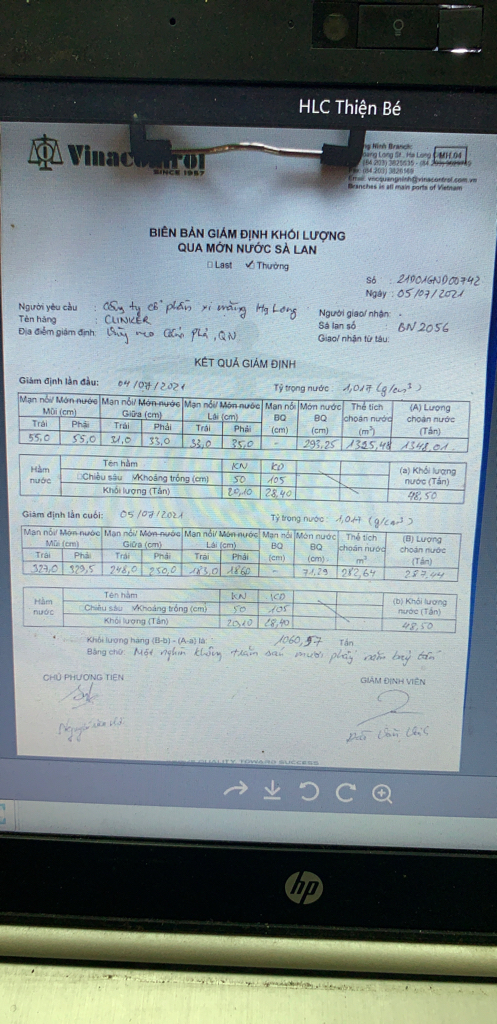 HLC Thiện Bé
Vinacontrol
SINCE 1957
ng Ninh Branch:
MH.04
Branches in all main ports of Vietnam
BIÊN BẢN GIÁM ĐỊNH KHỐI LƯỢNG
QUA MỚN NƯỚC SÀ LAN
Last Thường
Số : 21D01GND00742
Ngày : 05/07/2021
Người yêu cầu : Công ty cổ phần xi măng Hạ Long
Người giao/ nhận: -
Tên hàng : CLINKER
Sà lan số : BN 2056
Địa điểm giám định: Vùng neo Cẩm Phả, QN
Giao/ nhận từ tàu:
KẾT QUẢ GIÁM ĐỊNH
Giám định lần đầu: 04/07/2021 Tỷ trọng nước : 1,017 (g/cm³)
Mạn nổi/ Mớn nước Mũi (cm) Mạn nổi/ Mớn nước Giữa (cm) Mạn nổi/ Mớn nước Lái (cm) Mạn nổi BQ (cm) Mớn nước BQ (cm) Thể tích choán nước (m³) (A) Lượng choán nước (Tấn)
Trái Phải Trái Phải Trái Phải
55,0 55,0 31,0 33,0 33,0 35,0 - 293,25 1325,48 1348,01
Hầm nước Tên hầm KN KD (a) Khối lượng nước (Tấn)
Chiều sâu Khoảng trống (cm) 50 105
Khối lượng (Tấn) 20,10 28,40 48,50
Giám định lần cuối: 05/07/2021 Tỷ trọng nước : 1,017 (g/cm³)
Mạn nổi/ Mớn nước Mũi (cm) Mạn nổi/ Mớn nước Giữa (cm) Mạn nổi/ Mớn nước Lái (cm) Mạn nổi BQ (cm) Mớn nước BQ (cm) Thể tích choán nước m³ (B) Lượng choán nước (Tấn)
Trái Phải Trái Phải Trái Phải
327,0 329,5 248,0 250,0 183,0 186,0 - 71,29 282,64 287,44
Hầm nước Tên hầm KN KD (b) Khối lượng nước (Tấn)
Chiều sâu Khoảng trống (cm) 50 105
Khối lượng (Tấn) 20,10 28,40 48,50
Khối lượng hàng (B-b) - (A-a) là: 1060,57 Tấn
Bằng chữ: Một nghìn không trăm sáu mươi phẩy năm bảy tấn
CHỦ PHƯƠNG TIỆN GIÁM ĐỊNH VIÊN
QUALITY TOWARD SUCCESS
hp